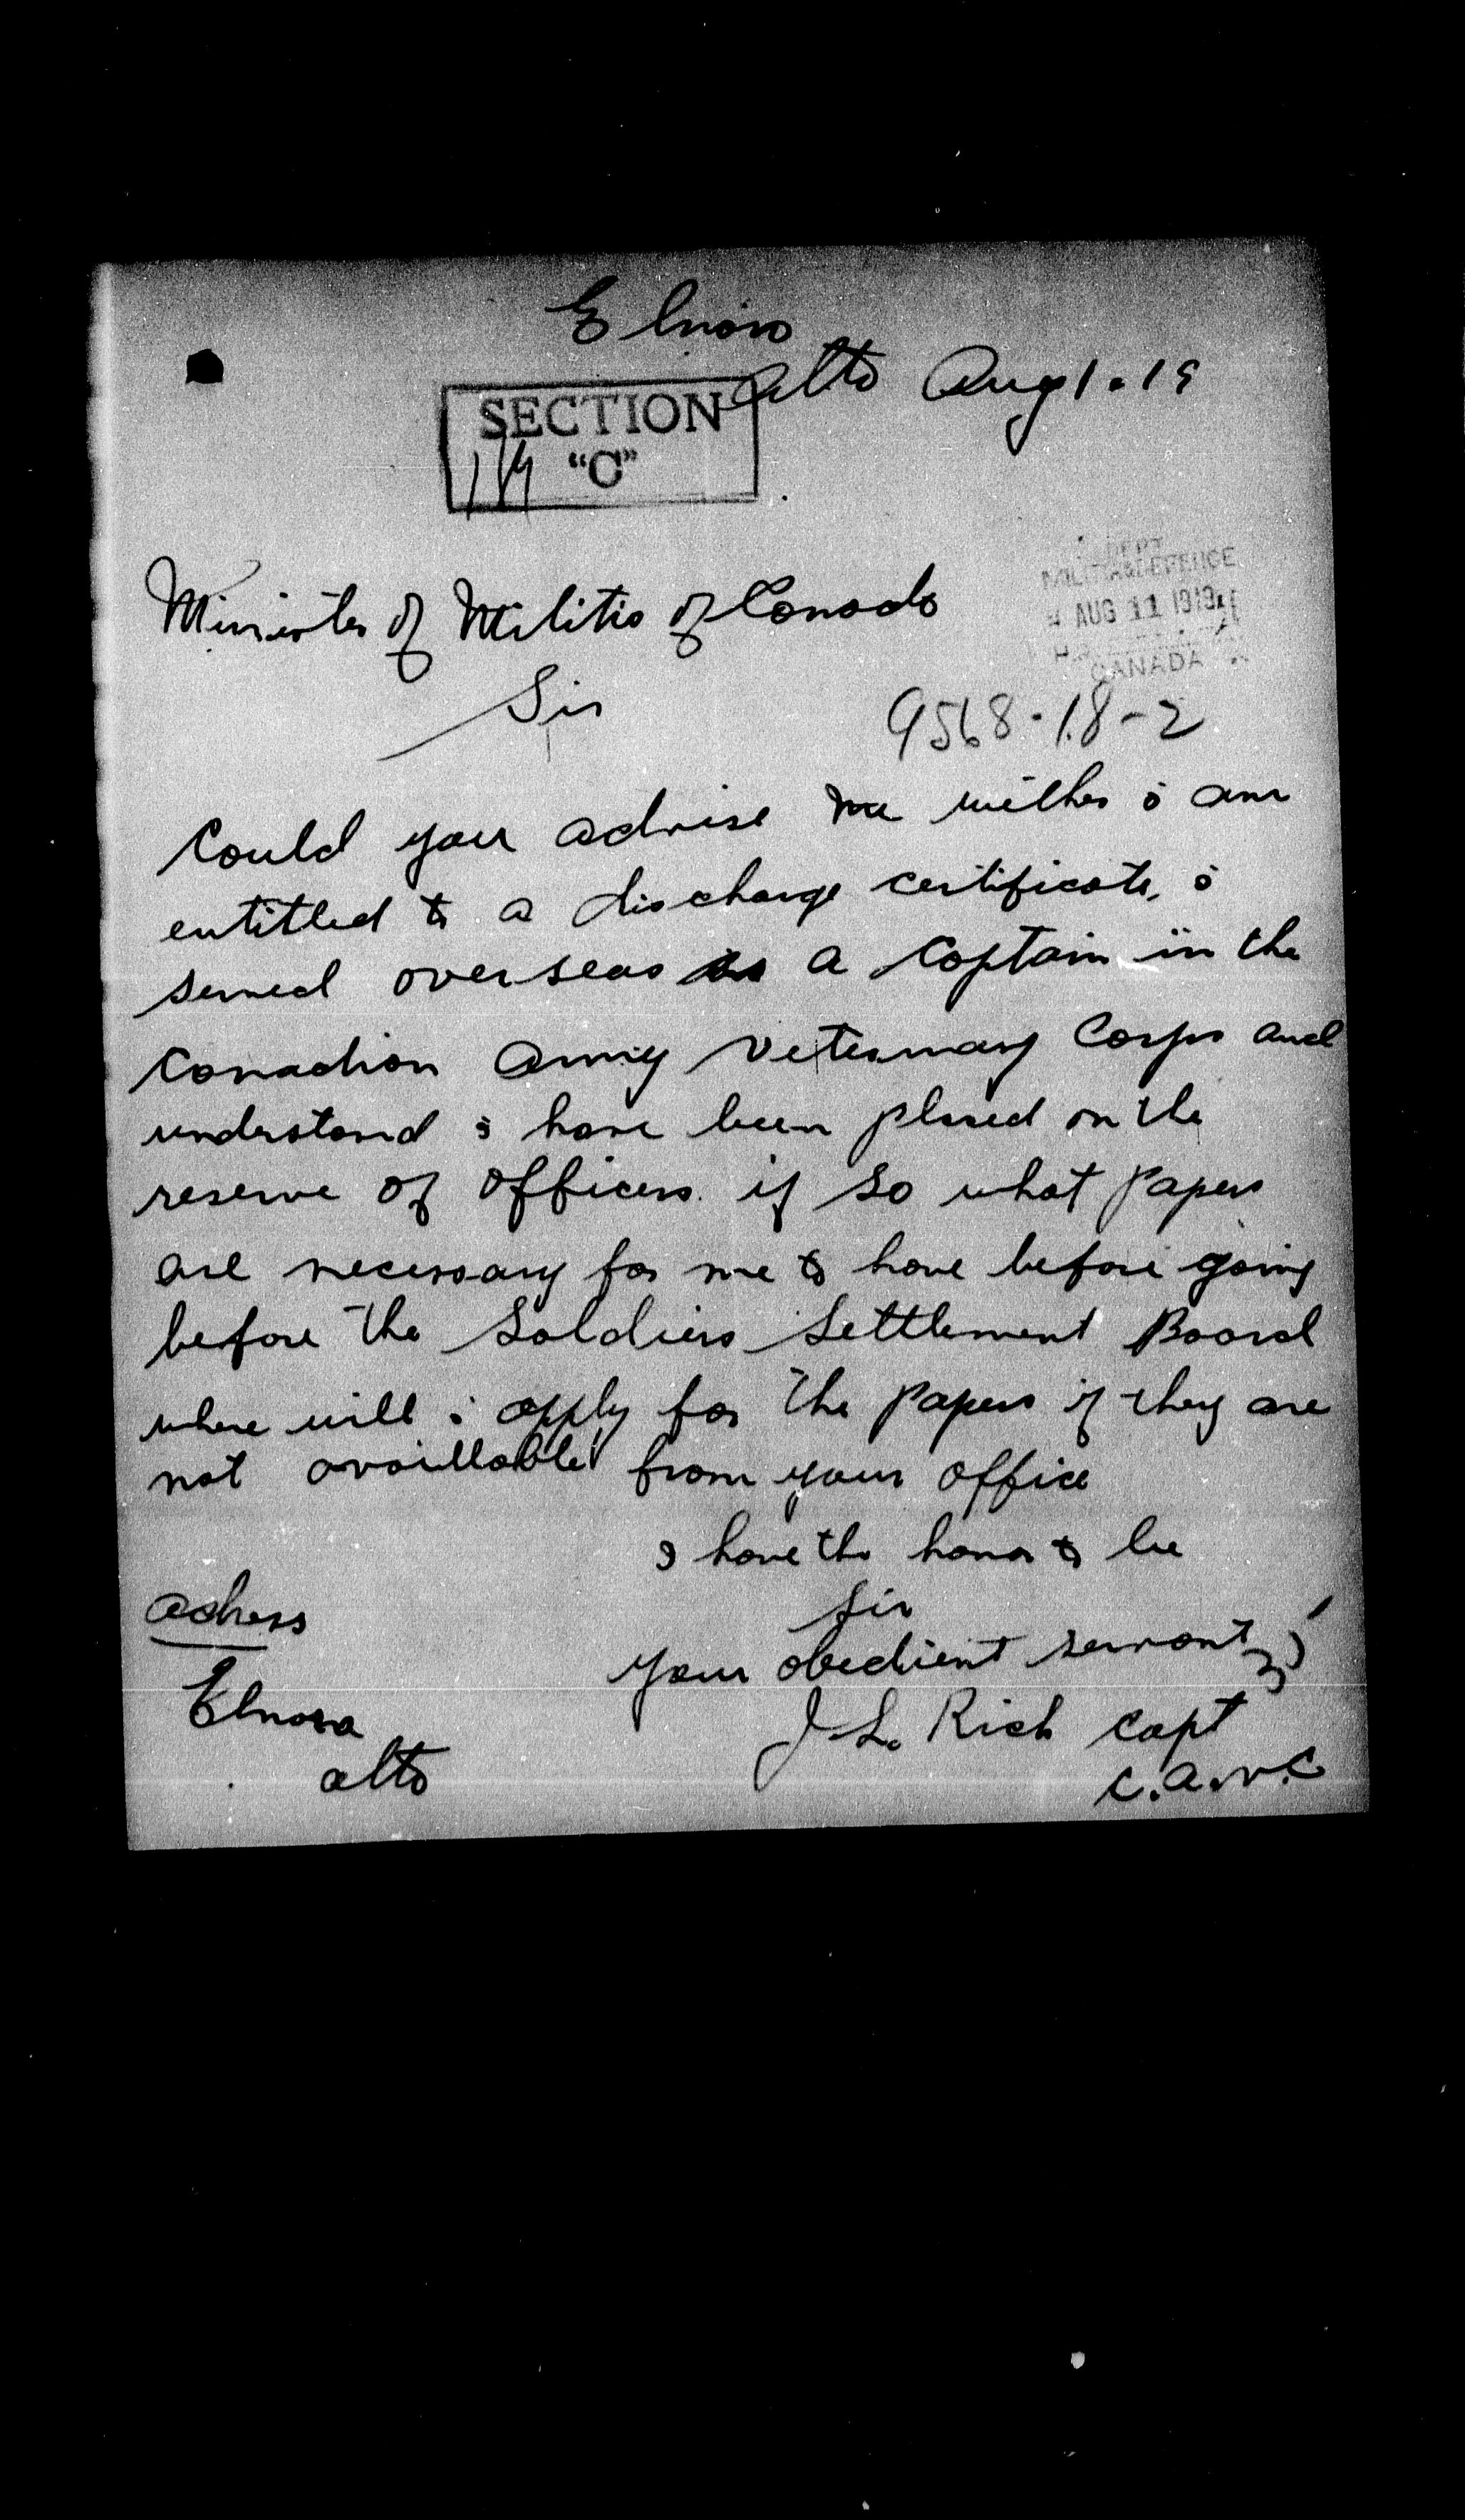 Elnora
Alta Aug 1. 19
SECTION
"C"
Minister of Militia of Canada
DEPT
MILITIA & DEFENCE
AUG 11 1919
CANADA
Sir
9568-18-2
Could you advise me wither i am
entitled to a discharge certificate, i
served overseas as a Captain in the
Canadian Army Veternary Corps and
understand i have been plased on the
reserve of officers. if so what papers
are necessary for me to have before going
before the Soldiers Settlement Board
where will i apply for the papers if they are
not availlable from your office
I have the honor to be
Sir
your obedient servant
J. L. Rich Capt
C.A.V.C
Adress
Elnora
alta